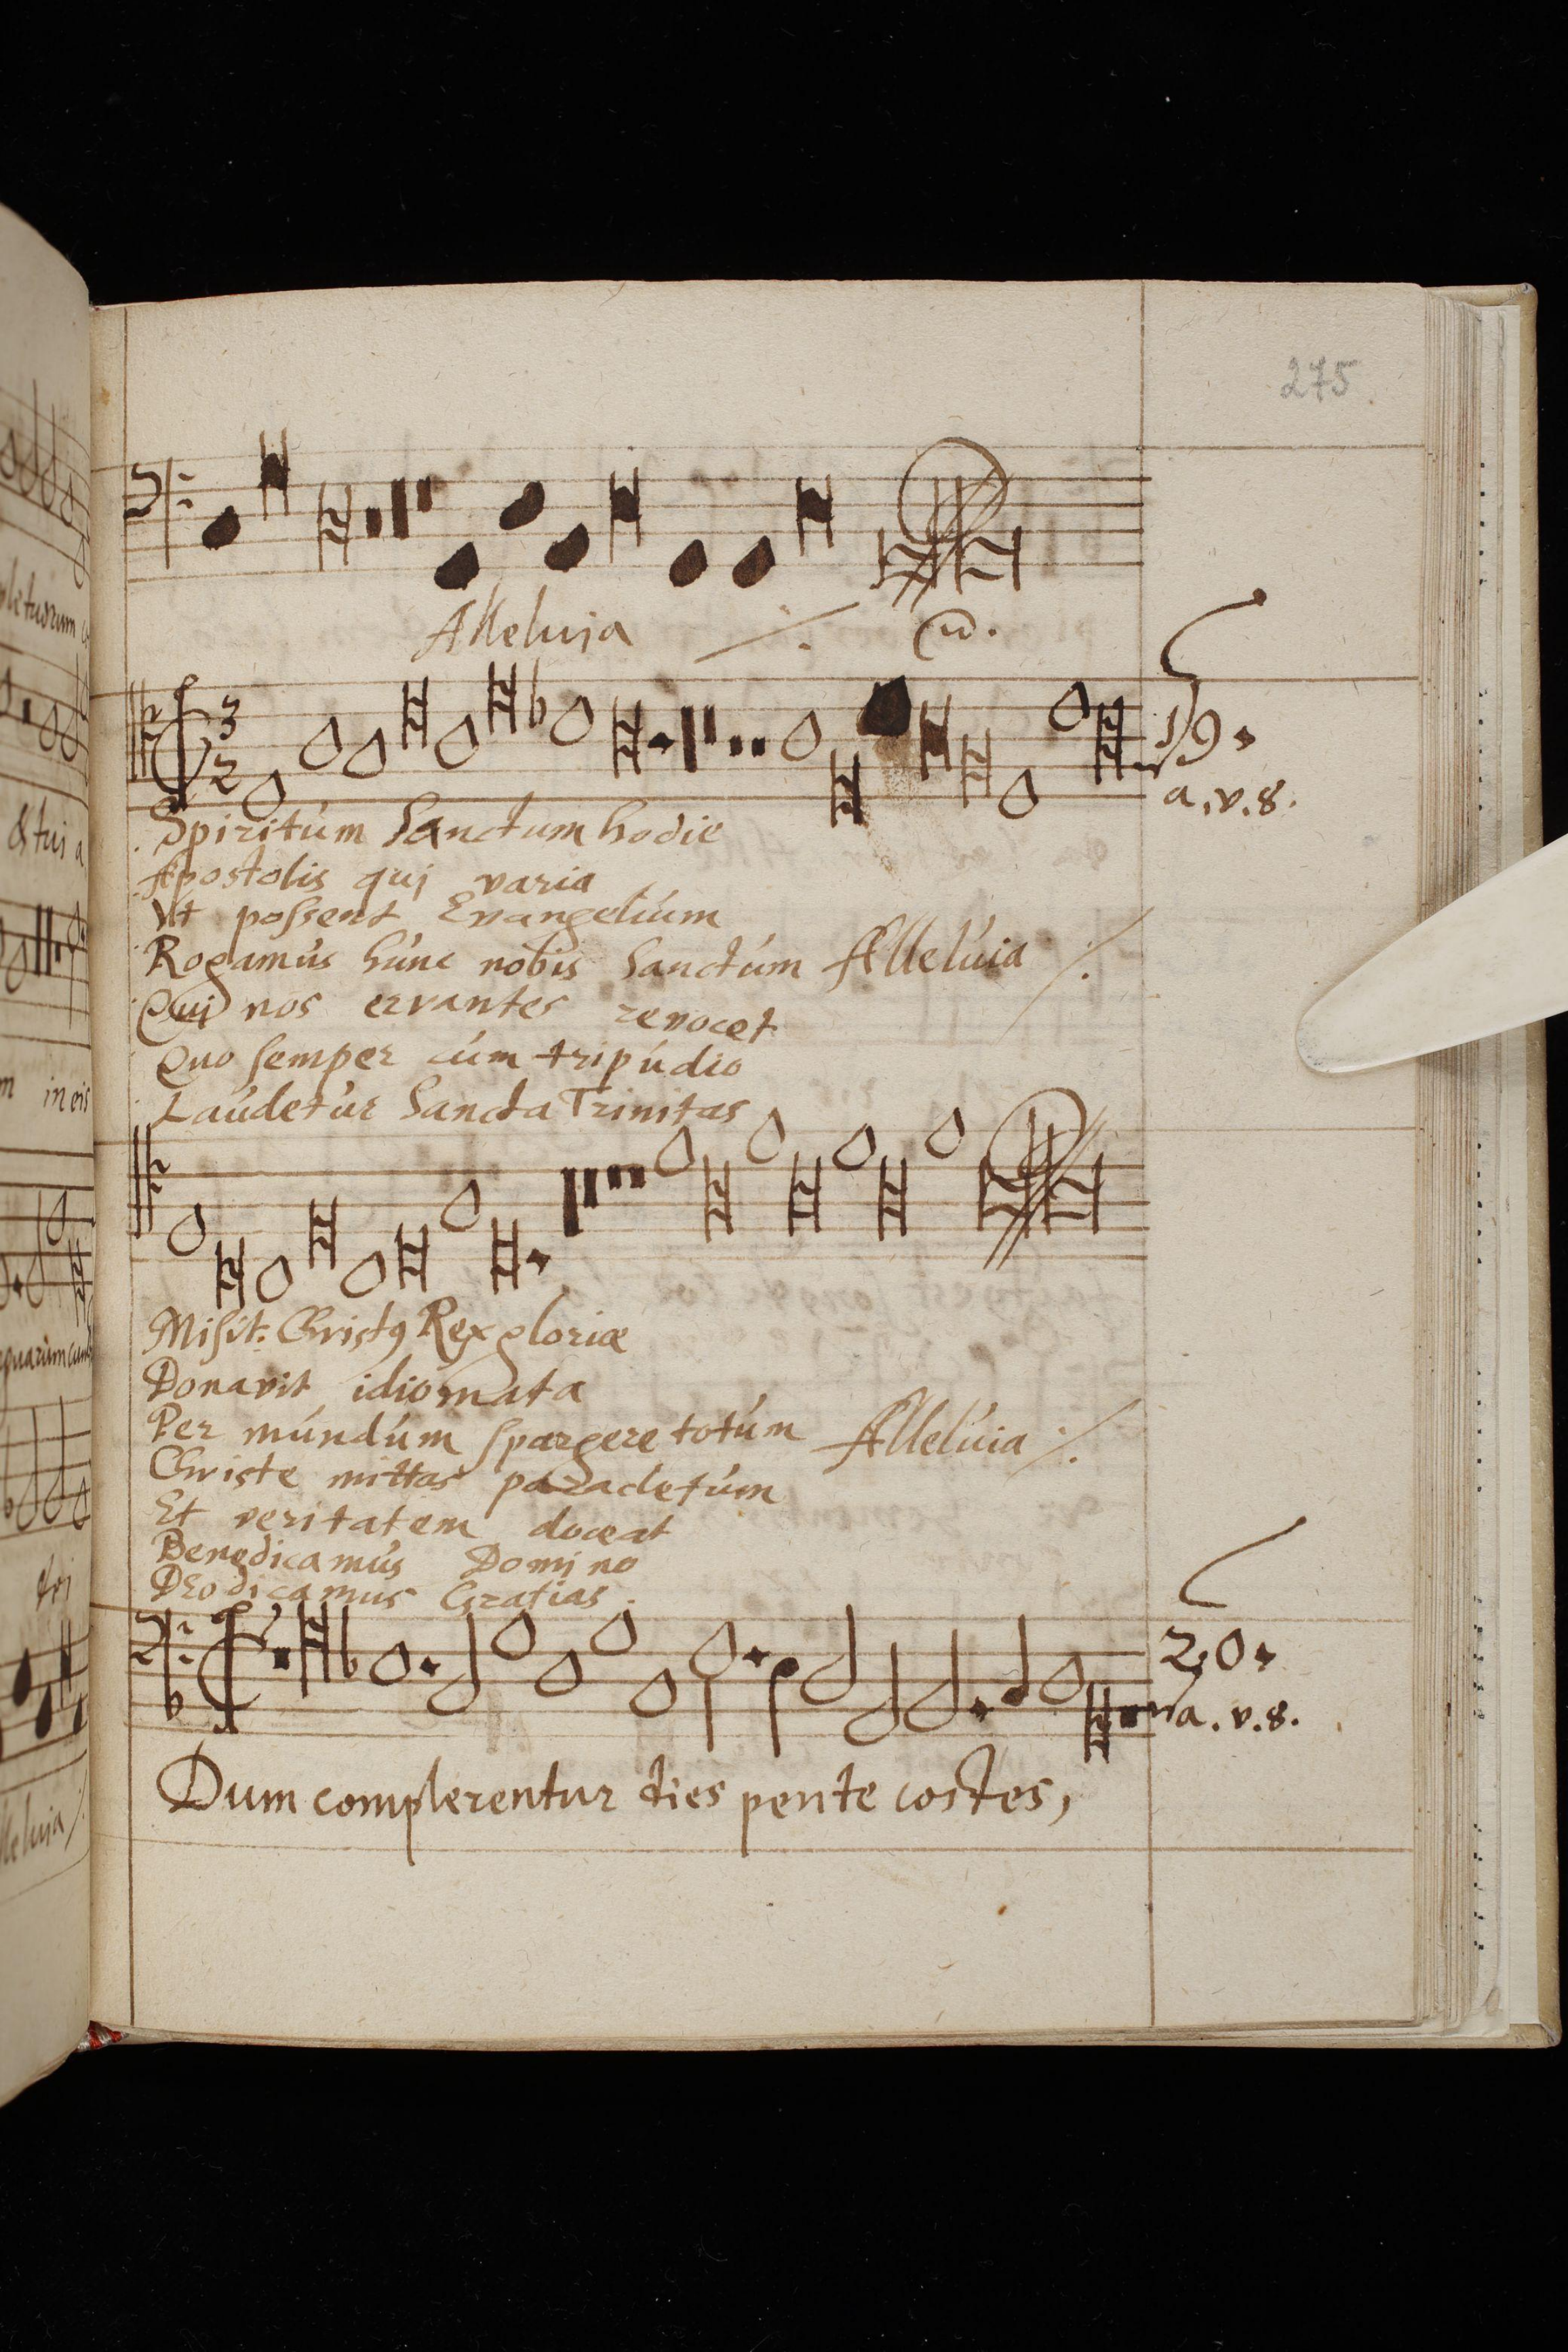 275
Alleluia ⁒ (w.
3
2
19.
a.v.8.
Spiritúm Sanctum hodie
Apostolis quj varia
Vt possent Evangeliúm
Rogamús húnc nobis Sanctúm Allelúia ⁒
Quj nos errantes revocet
Quo semper cúm tripúdio
Laúdetúr Sancta Trinitas
Misit Christ9 Rex gloriæ
Donavit idiomata
Per múndúm spargere totúm Allelúia ⁒
Christe mittas paracletúm
Et veritatem doceat
Benedicamús Domino
Deo dicamus Gratias.
20.
a.v.8.
Dum complerentur dies pente costes,